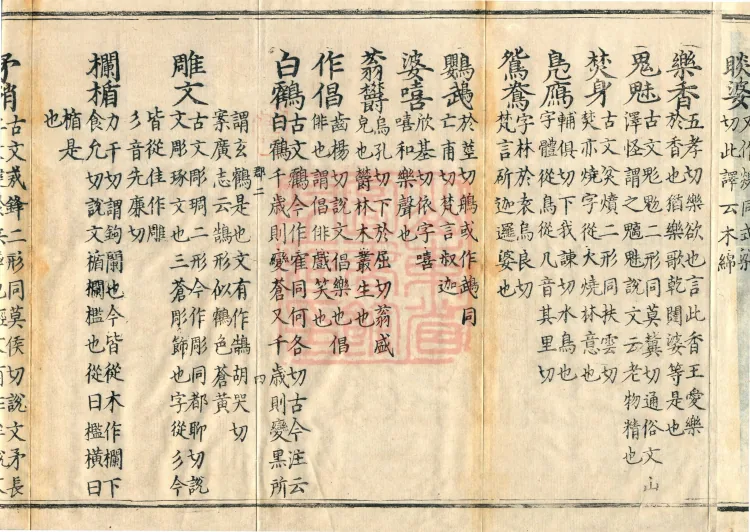 睒婆
切此譯云木綿
樂香
五孝切樂欲也言此香王愛樂
於香也猶樂歌乾闥婆等是也
鬼魅
古文鬽䰡二形同莫冀切通俗文山
澤怪謂之魑魅說文云老物精也
焚身
古文炃燌二形同扶雲切
焚亦燒字從火燒林意也
鳧鴈
輔俱切下我諫切水鳥也
字體從鳥從几音其里切
鴛鴦
字林於袁烏良切
梵言斫迦邏婆也
鸚鵡
於莖切鵡或作䳇同
亡甫切梵言叔迦
婆嘻
欣基切依字嘻
嘻和樂聲也
蓊欝
烏孔切下於屈切蓊盛
皃也欝林木叢生也
作倡
齒楊切說文倡樂也倡
俳也謂倡俳戲笑也
白鶴
古文鶴今作隺同何各切古今注云
白鶴千歲則變蒼又千歲則變黑所
郡二
四
謂玄鶴是也文有作鵠胡哭切
案廣志云鵠形似鶴色蒼黃
雕文
古文彫琱二形今作彫同都聊切說
文彫琢文也三蒼彫飾也字從彡今
皆從隹作雕
彡音先廉切
欄楯
力干切謂鉤闌也今皆從木作欄下
食允切說文楯欄檻也從曰檻橫曰
楯是
也
矛矟
古文𢦧鋒二形同莫侯切說文矛長